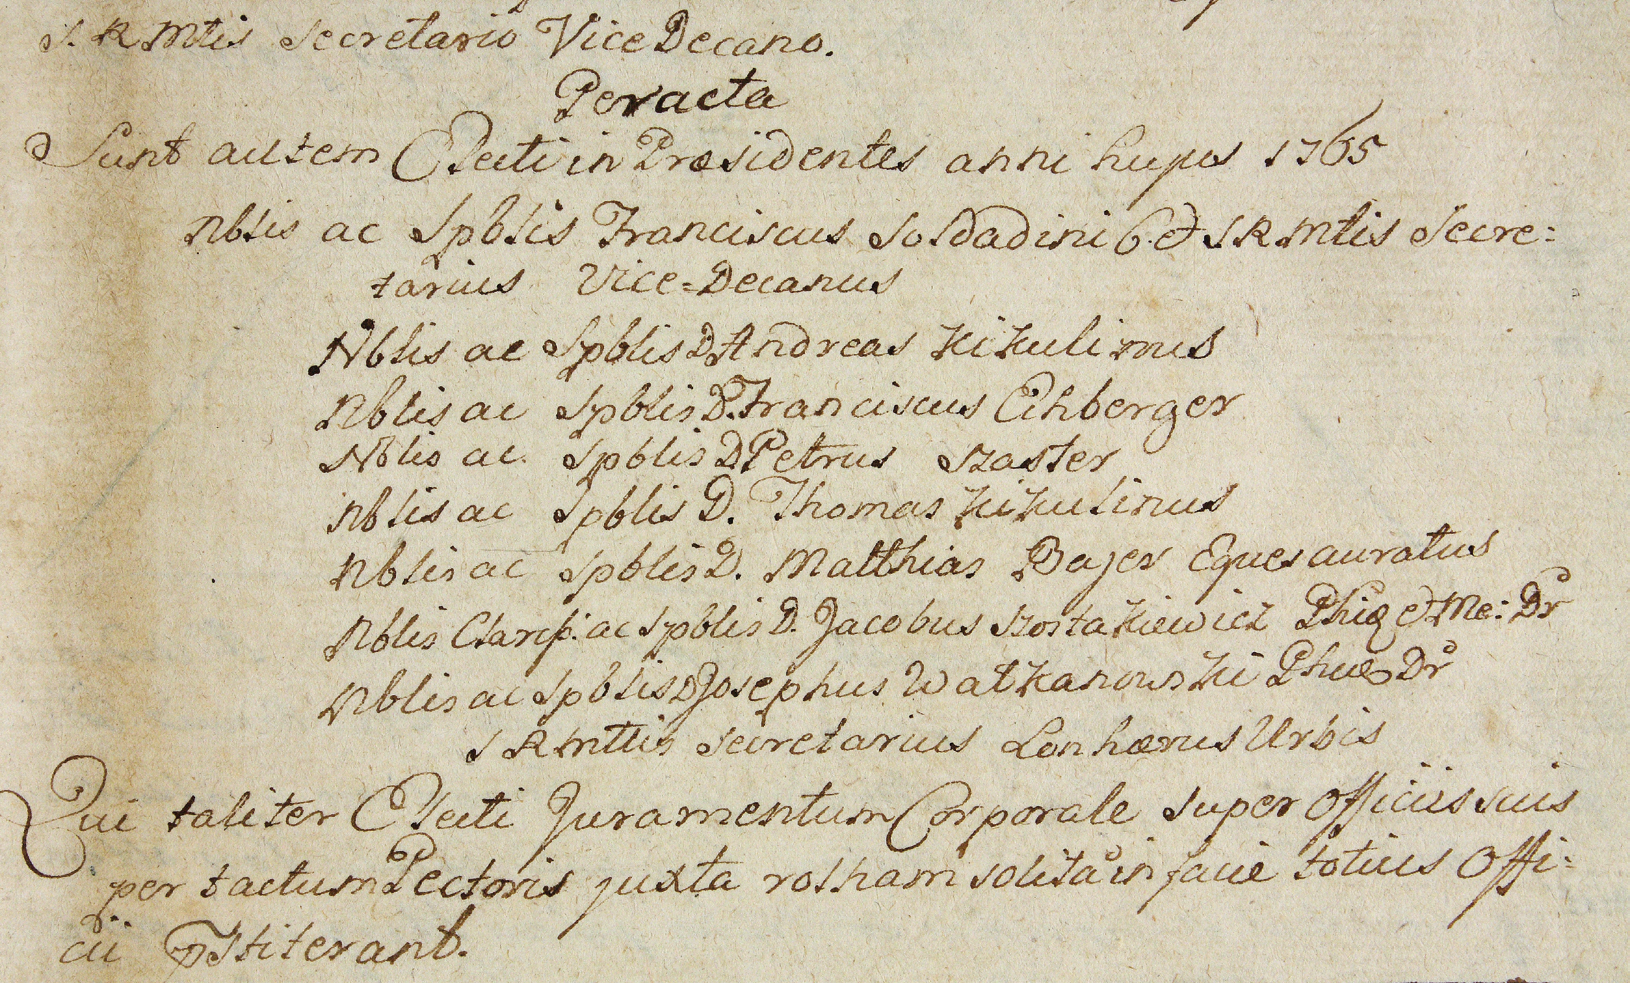 S. R. Mtis Secretario Vice Decano.
Peracta
Sunt autem Electi in Præsidentes anni hujus 1765
Nblis ac Spblis Franciscus Soldadini C. et S R Mtis Secre=
tarius Vice=Decanus
Nblis ac Spblis D Andreas Kikulinus
Nblis ac Spblis D. Franciscus Eihberger
Nblis ac Spblis D Petrus Szaster
Nblis ac Spblis D. Thomas Kikulinus
Nblis ac Spblis D. Matthias Bajer Eques auratus
Nblis Clariss: ac Spblis D. Jacobus Szostakiewicz Phiæ et Me: Dr
Nblis ac Spblis D Josephus Watkanowski Phiæ Dr
S R Mttis Secretarius Lonhærus Urbis
Qui taliter Electi Juramentum Corporale super Officiis suis
per tactum Pectoris juxta rotham solitã in facie totius Offi=
cii p̃stiterant.